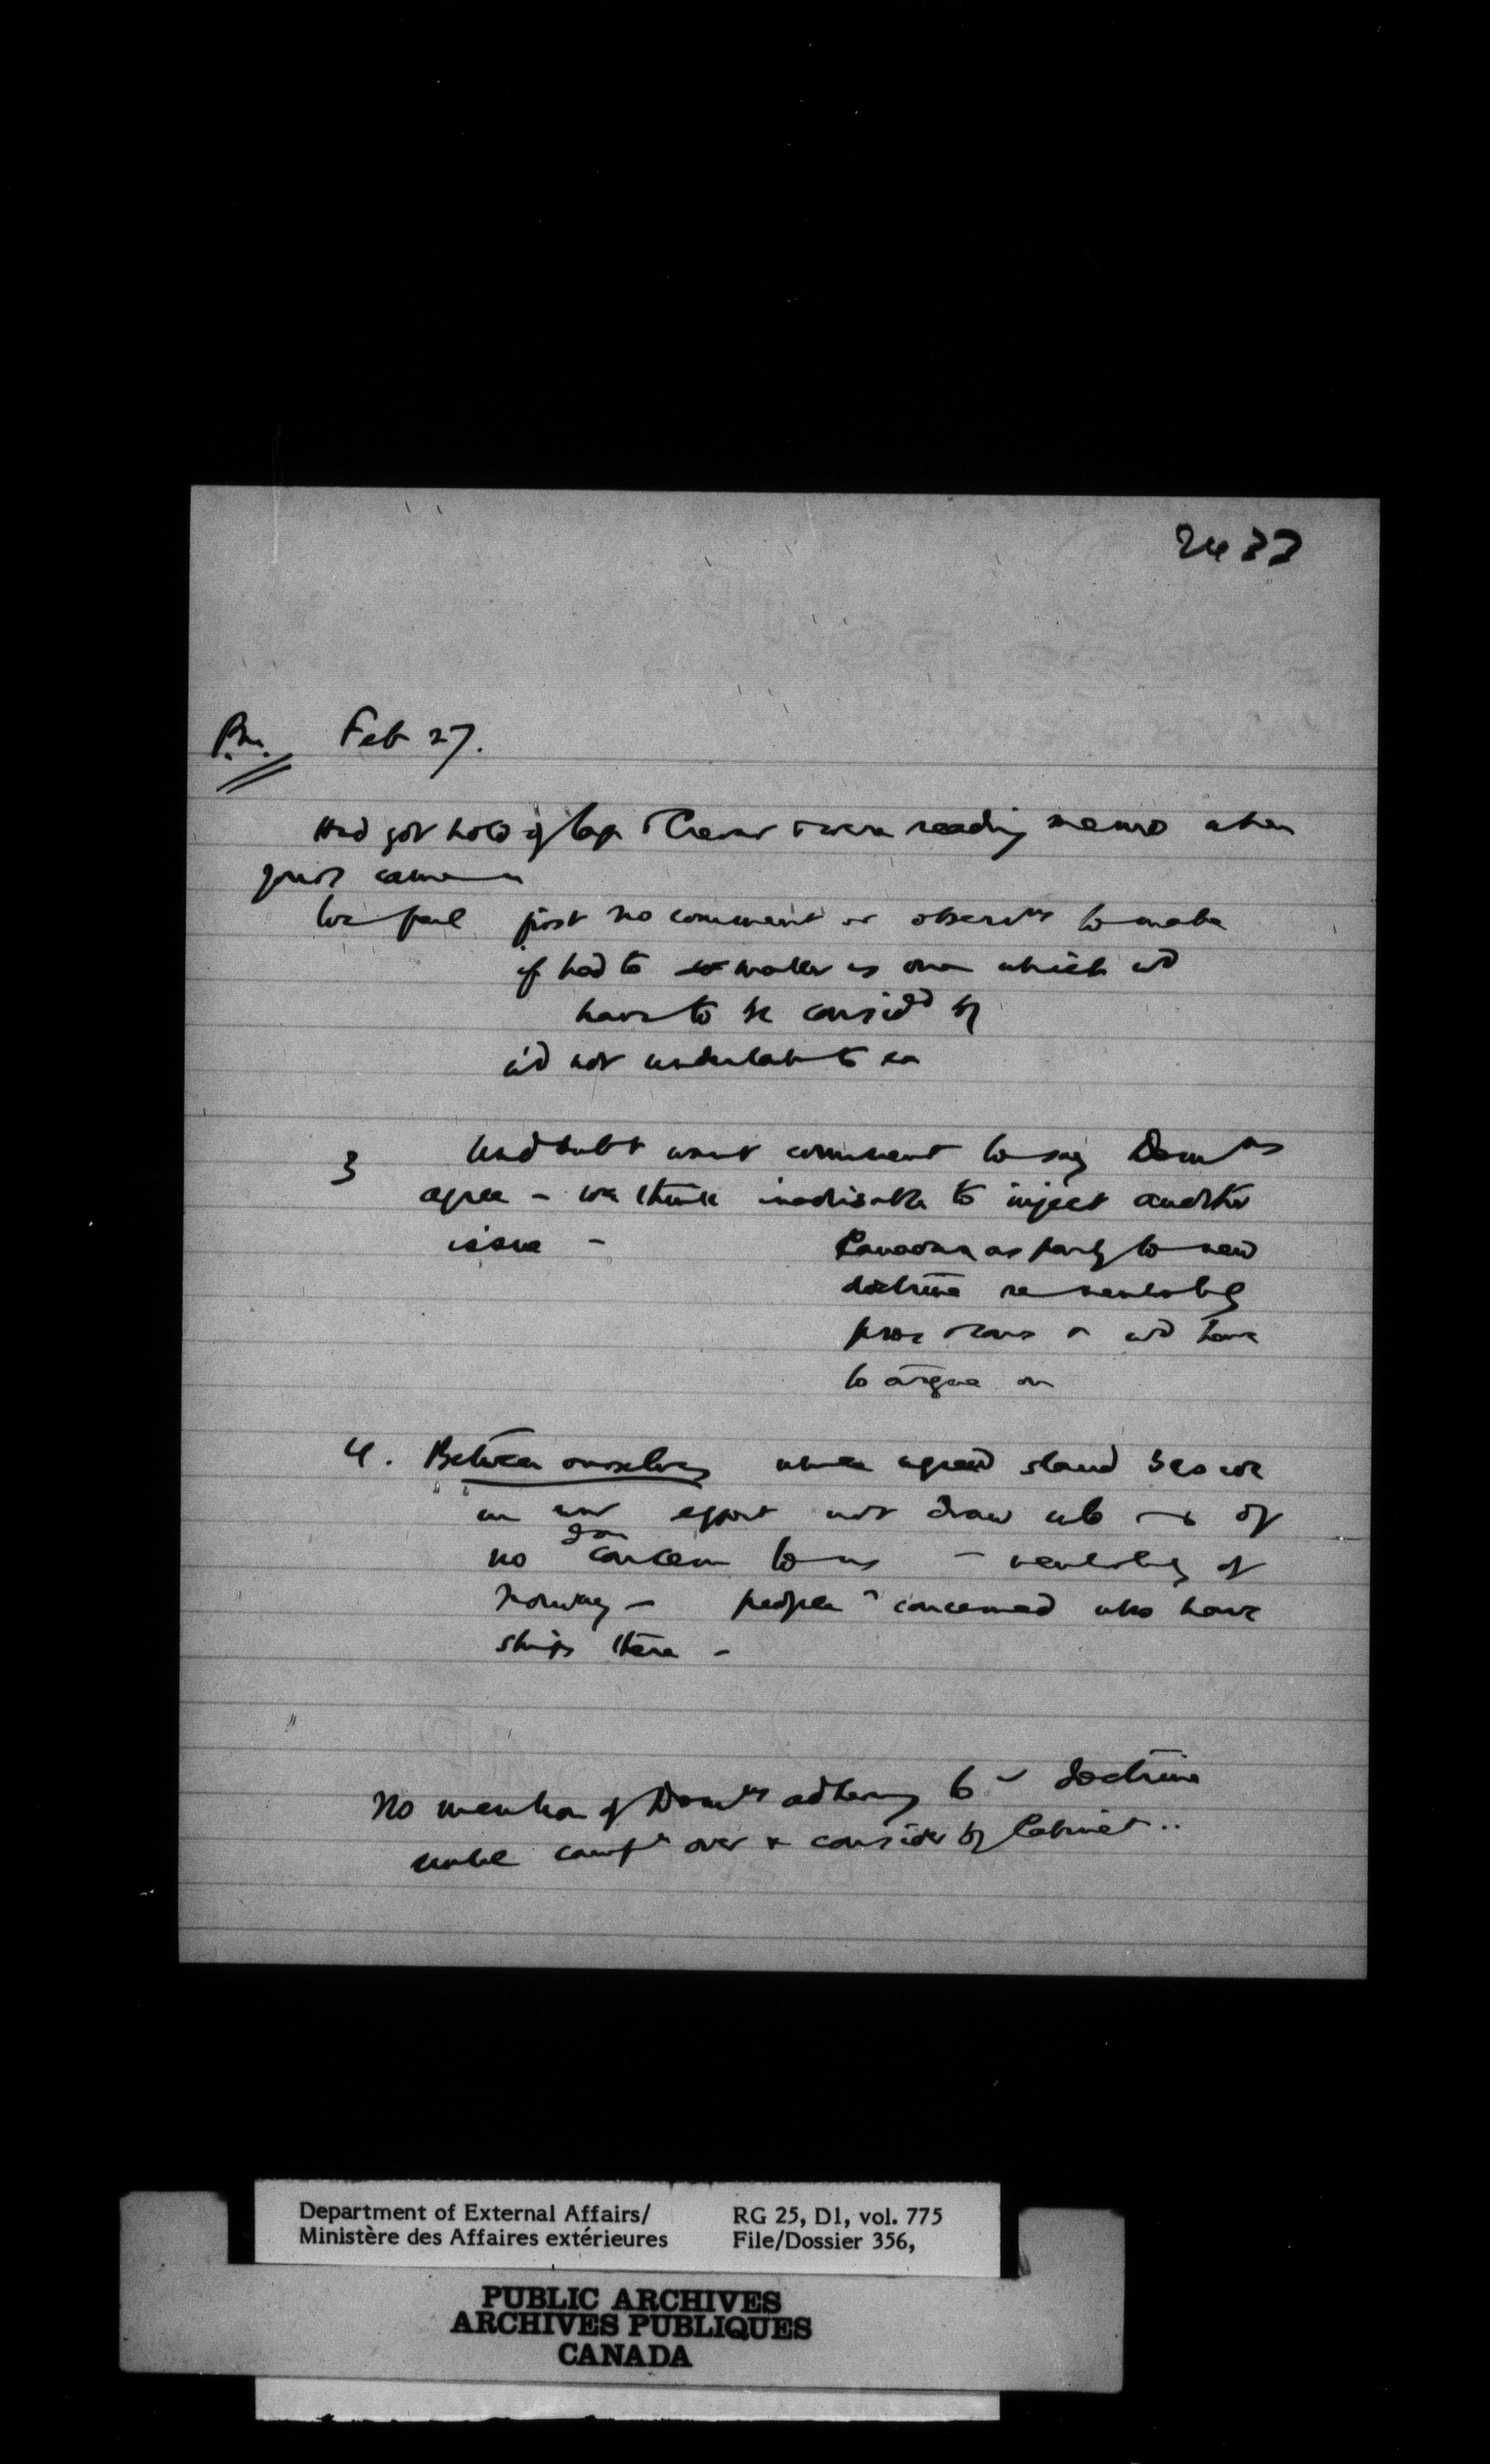 2433
P.M. Feb 27.
Had got hold of Lap & were reading memo when
yours came
We feel first no comment or observns to make
if had to matter is one which wd
have to be considd by
wd not undertake to
3 Undoubt want comment to say Domns
agree - we think inadvisable to inject another
issue - Canada as party to new
doctrine re neutrality
& wd have
to argue on
4. Between ourselves when agreed stand
in war effort not draw of
no concern to us - neutrality of
Norway - people concerned who have
ships there -
No mention of Domns adhering to doctrine
until campn over & consider by Cabinet..
Department of External Affairs/ RG 25, D1, vol. 775
Ministère des Affaires extérieures File/Dossier 356,
PUBLIC ARCHIVES
ARCHIVES PUBLIQUES
CANADA